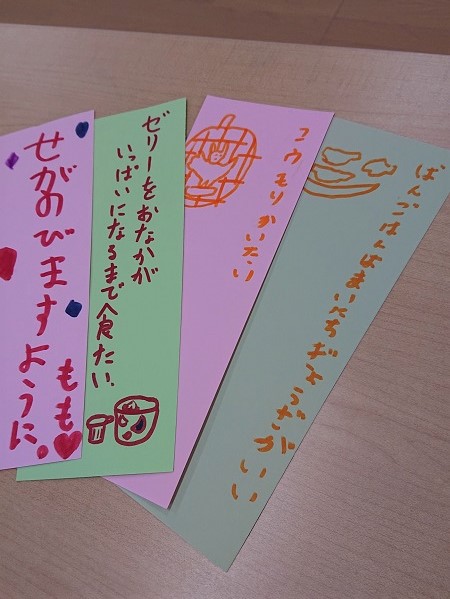 せがのびますように。
もも
ゼリーをおなかが
いっぱいになるまで食たい.
コウモリかいたい
ばんごはんはまいにちぎょうざがいい